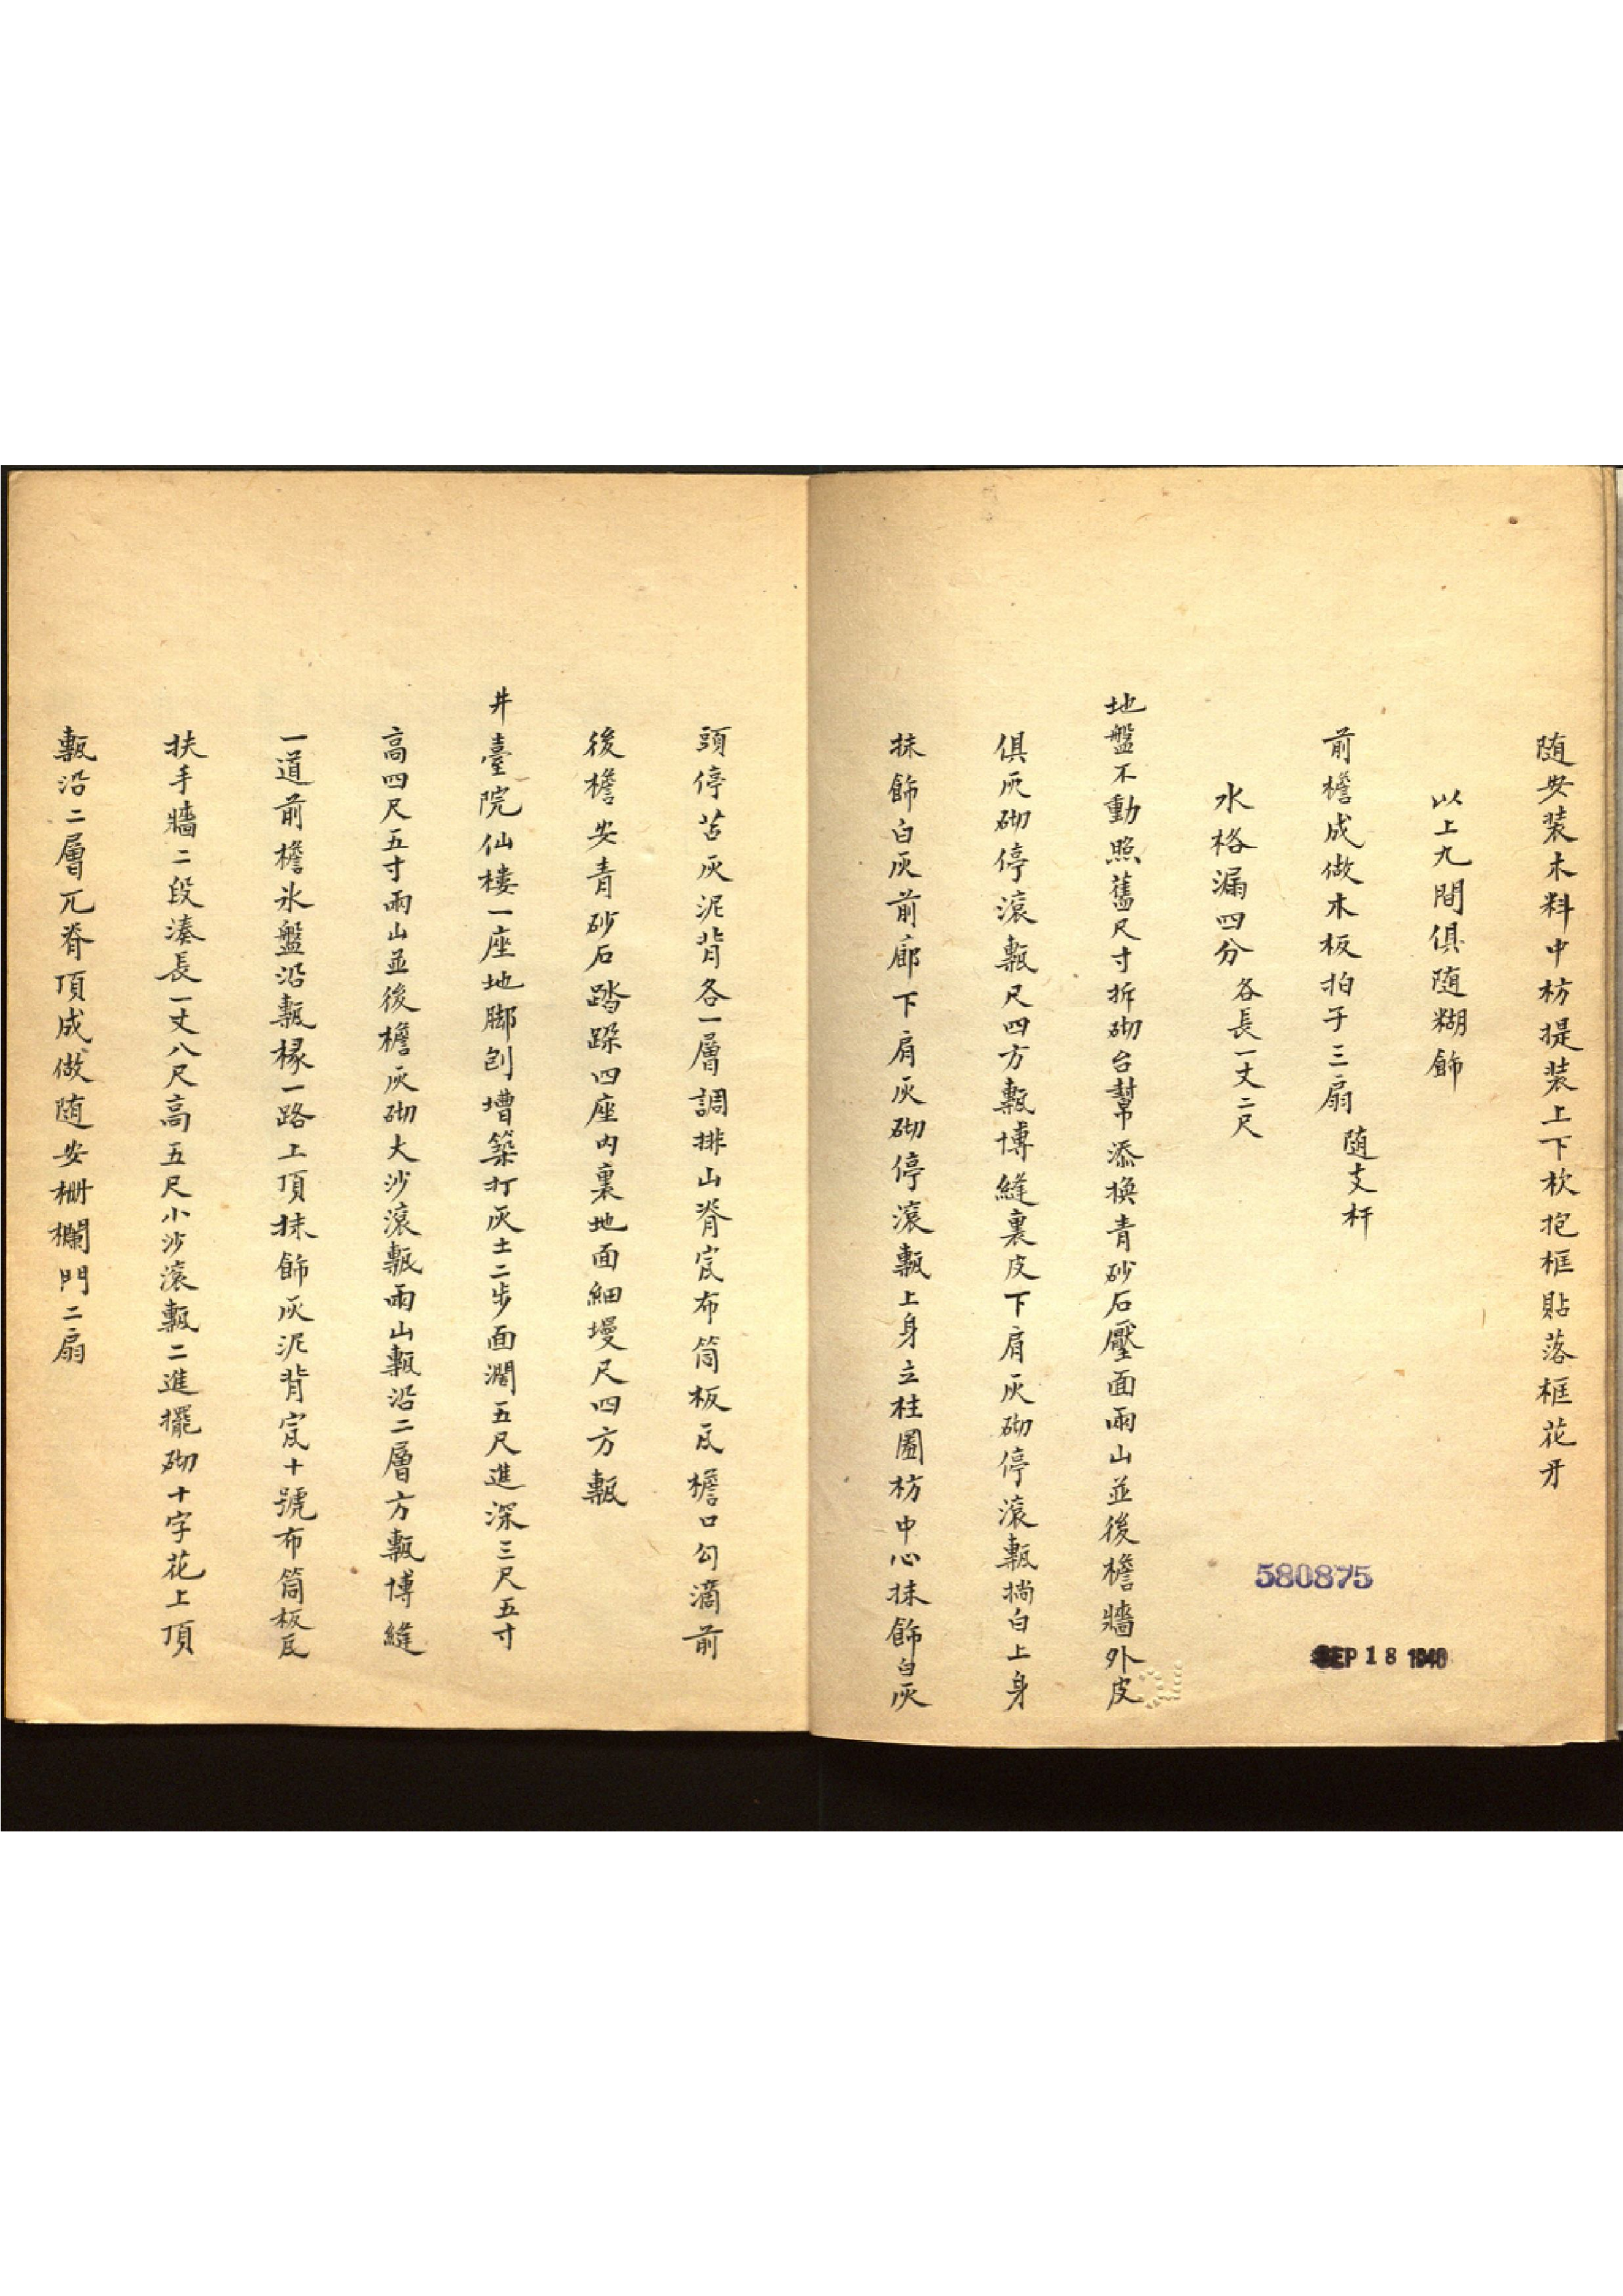 随安装木料中枋提装上下枕抱框貼落框花牙
以上九間俱随糊飾
前檐成做木板拍子三扇 随支杆
水格漏四分 各長一丈二尺
地盤不動照舊尺寸拆砌台幫添換青砂石壓面兩山並後檐牆外皮
俱灰砌停滚甎尺四方甎博縫裏皮下肩灰砌停滚甎摛白上身
抹飾白灰前廊下肩灰砌停滚甎上身立柱圈枋中心抹飾白灰
頭停苫灰泥背各一層調排山脊宽布筒板瓦檐口勾滴前
後檐安青砂石踏跺四座内裏地面細墁尺四方甎
井臺院仙樓一座地脚刨墁築打灰土二步面濶五尺進深三尺五寸
高四尺五寸兩山並後檐灰砌大沙滚甎兩山甎沿二層方甎博縫
一道前檐氷盤沿甎椽一路上頂抹飾灰泥背宽十號布筒板瓦
扶手牆二段湊長一丈八尺高五尺小沙滚甎二進擺砌十字花上頂
甎沿二層兀脊頂成做随安栅欄門二扇
580875
SEP 18 1940